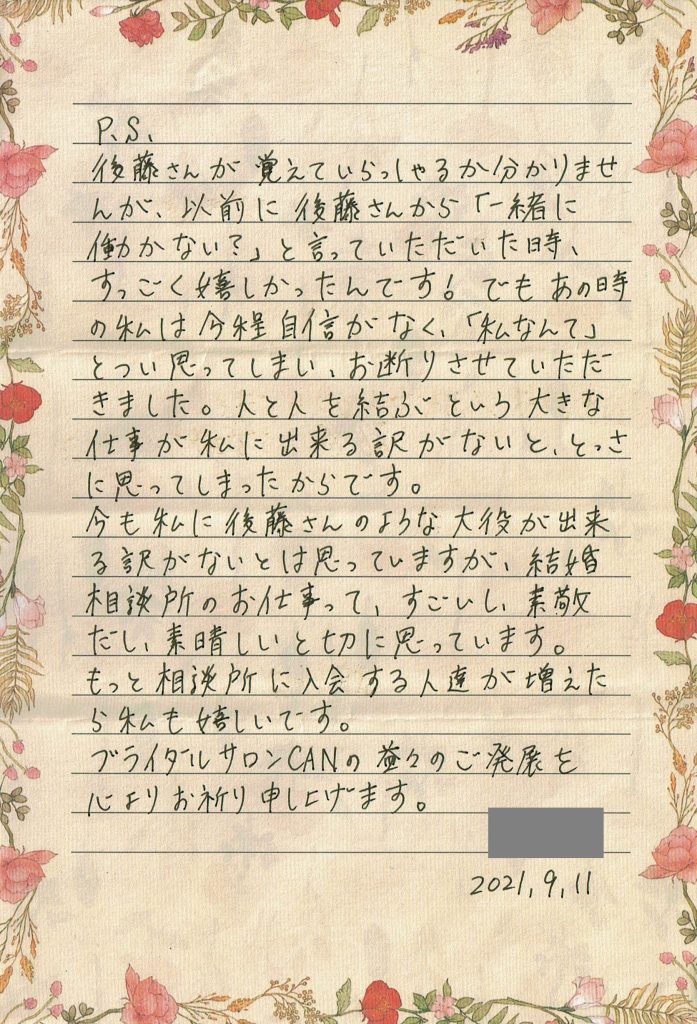 P.S.
後藤さんが覚えていらっしゃるか分かりませ
んが、以前に後藤さんから「一緒に
働かない？」と言っていただいた時、
すっごく嬉しかったんです！でもあの時
の私は今程自信がなく、「私なんて」
とつい思ってしまい、お断りさせていただ
きました。人と人を結ぶという大きな
仕事が私に出来る訳がないと、とっさ
に思ってしまったからです。
今も私に後藤さんのような大役が出来
る訳がないとは思っていますが、結婚
相談所のお仕事って、すごいし、素敵
だし、素晴しいと切に思っています。
もっと相談所に入会する人達が増えた
ら私も嬉しいです。
ブライダルサロンCANの益々のご発展を
心よりお祈り申し上げます。
2021,9,11